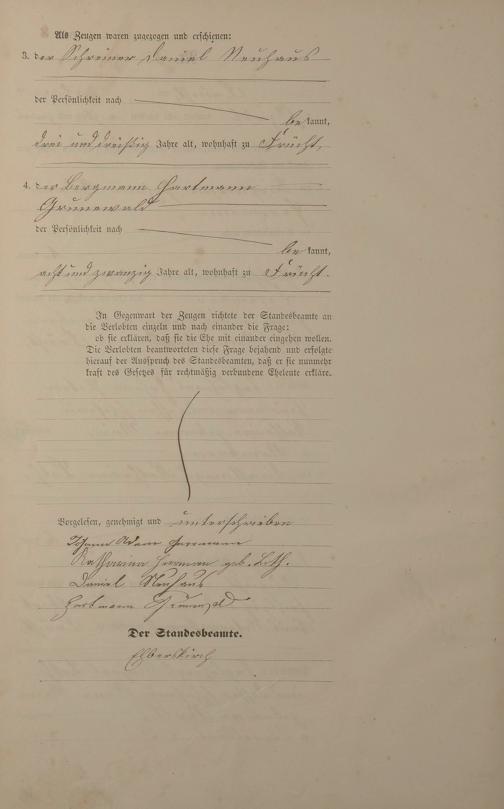 Als Zeugen waren zugezogen und erschienen:
3. der Schreiner Daniel Neuhaus
der Persönlichkeit nach
be kannt,
drei und dreißig Jahre alt, wohnhaft zu Frücht,
4. der Bergmann Hartmann
Grunewald
der Persönlichkeit nach
be kannt,
acht und zwanzig Jahre alt, wohnhaft zu Frücht.
In Gegenwart der Zeugen richtete der Standesbeamte an
die Verlobten einzeln und nach einander die Frage:
ob sie erklären, daß sie die Ehe mit einander eingehen wollen.
Die Verlobten beantworteten diese Frage bejahend und erfolgte
hierauf der Ausspruch des Standesbeamten, daß er sie nunmehr
kraft des Gesetzes für rechtmäßig verbundene Eheleute erkläre.
Vorgelesen, genehmigt und unterschrieben
Johann Adam Herrmann
Katharina Herman geb.
Daniel Neuhaus
Hartmann Grunewald
Der Standesbeamte.